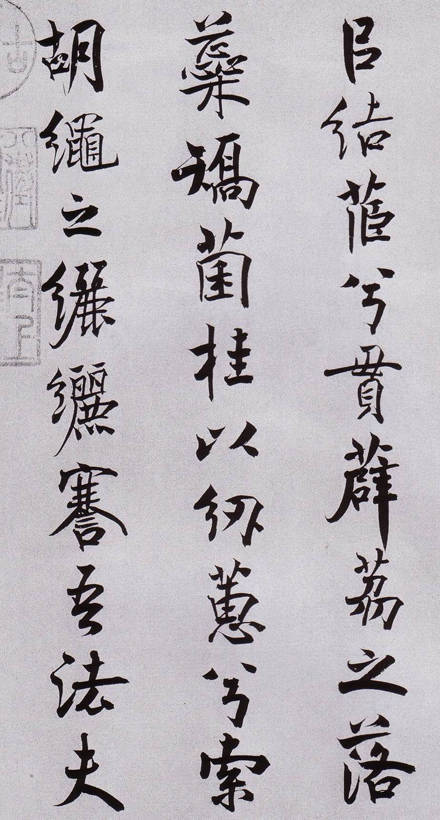 㠯結茝兮貫薜荔之落
蘂矯菌桂以紉蕙兮索
胡繩之纚纚謇吾法夫